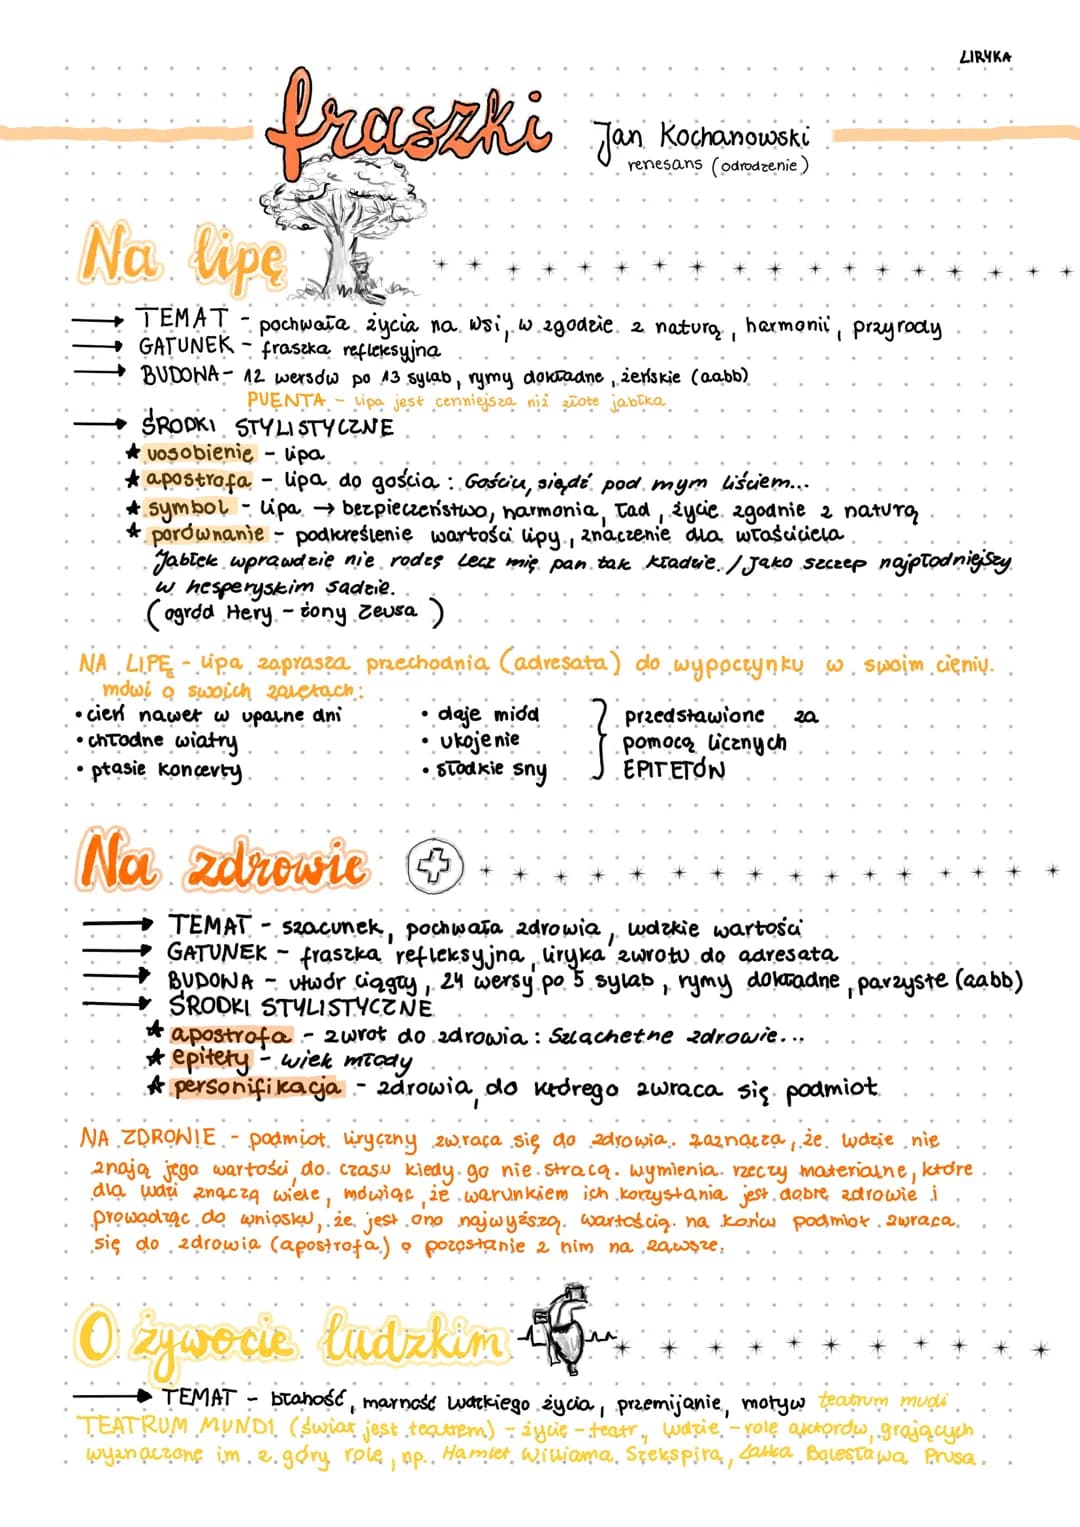 LIRYKA
fraszki
Jan Kochanowski
renesans (odrodzenie)
Na lipę
→ TEMAT - pochwała życia na wsi, w zgodzie z naturą, harmonii, przyrody
→ GATUNEK - fraszka refleksyjna
→ BUDOWA - 12 wersów po 13 sylab, rymy dokładne, żeńskie (aabb)
PUENTA - lipa jest cenniejsza niż złote jabłka
→ ŚRODKI STYLISTYCZNE
★ uosobienie - lipa
★ apostrofa - lipa do gościa: Gościu, siądź pod mym liściem...
★ symbol - lipa → bezpieczeństwo, harmonia, ład, życie zgodnie z naturą
★ porównanie - podkreślenie wartości lipy, znaczenie dla właściciela
Jabłek wprawdzie nie rodzę lecz mię pan tak kładzie. / Jako szczep najpłodniejszy
w hesperyskim sadzie.
(ogród Hery - żony Zeusa)
NA LIPĘ - lipa zaprasza przechodnia (adresata) do wypoczynku w swoim cieniu.
mówi o swoich zaletach:
• cień nawet w upalne dni
• chłodne wiatry
• ptasie koncerty
• daje miód
• ukojenie
• słodkie sny
przedstawione za
pomocą licznych
EPITETÓW
Na zdrowie
→ TEMAT - szacunek, pochwała zdrowia, ludzkie wartości
→ GATUNEK - fraszka refleksyjna, liryka zwrotu do adresata
→ BUDOWA - utwór ciągły, 24 wersy po 5 sylab, rymy dokładne, parzyste (aabb)
→ ŚRODKI STYLISTYCZNE
★ apostrofa - zwrot do zdrowia: Szlachetne zdrowie...
★ epitety - wiek młody
★ personifikacja - zdrowia, do którego zwraca się podmiot
NA ZDROWIE - podmiot liryczny zwraca się do zdrowia. zaznacza, że ludzie nie
znają jego wartości do czasu kiedy go nie stracą. wymienia rzeczy materialne, które
dla ludzi znaczą wiele, mówiąc, że warunkiem ich korzystania jest dobre zdrowie i
prowadząc do wniosku, że jest ono najwyższą wartością. na końcu podmiot zwraca
się do zdrowia (apostrofa) o pozostanie z nim na zawsze.
O żywocie ludzkim
→ TEMAT - błahość, marność ludzkiego życia, przemijanie, motyw teatrum mudi
TEATRUM MUNDI (świat jest teatrem) - życie - teatr, ludzie - role aktorów, grających
wyznaczone im z góry role, np. Hamlet Williama Szekspira, Lalka Bolesława Prusa.